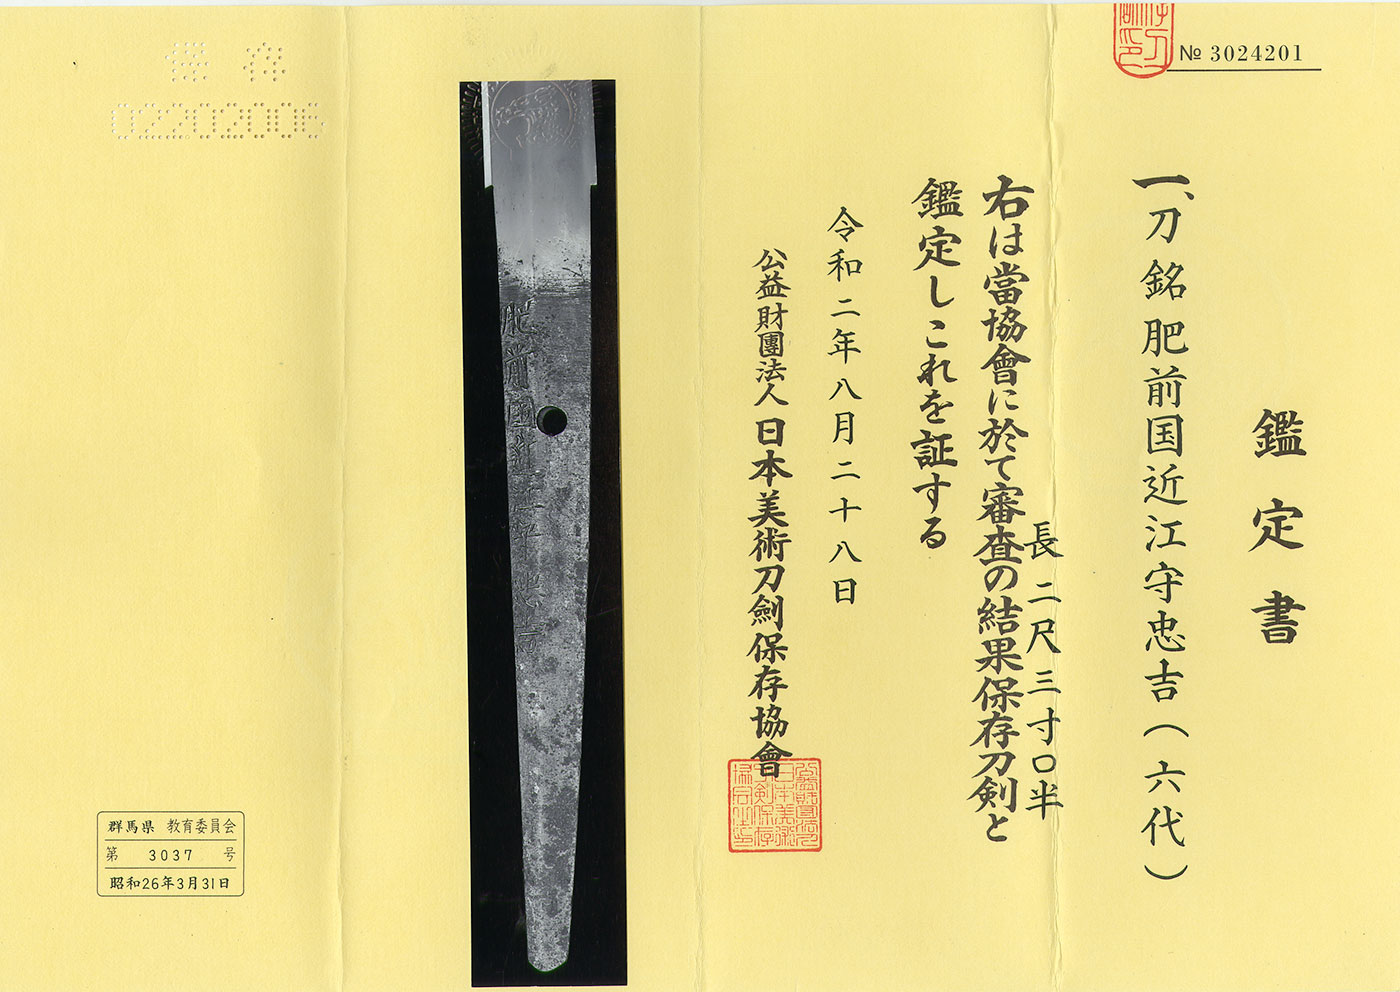 № 3024201
鑑定書
一、刀 銘 肥前国近江守忠吉(六代)
長 二尺三寸〇半
右は當協會に於て審査の結果保存刀剣と
鑑定しこれを証する
令和二年八月二十八日
公益財團法人 日本美術刀劍保存協會
肥前国近江守忠吉
保存
02202006
群馬県 教育委員会
第 3037 号
昭和26年3月31日